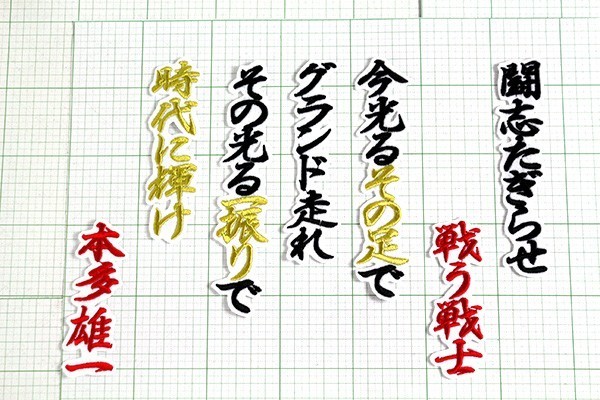 闘志たぎらせ
戦う戦士
今光るその足で
グランド走れ
その光る一振りで
時代に輝け
本多雄一